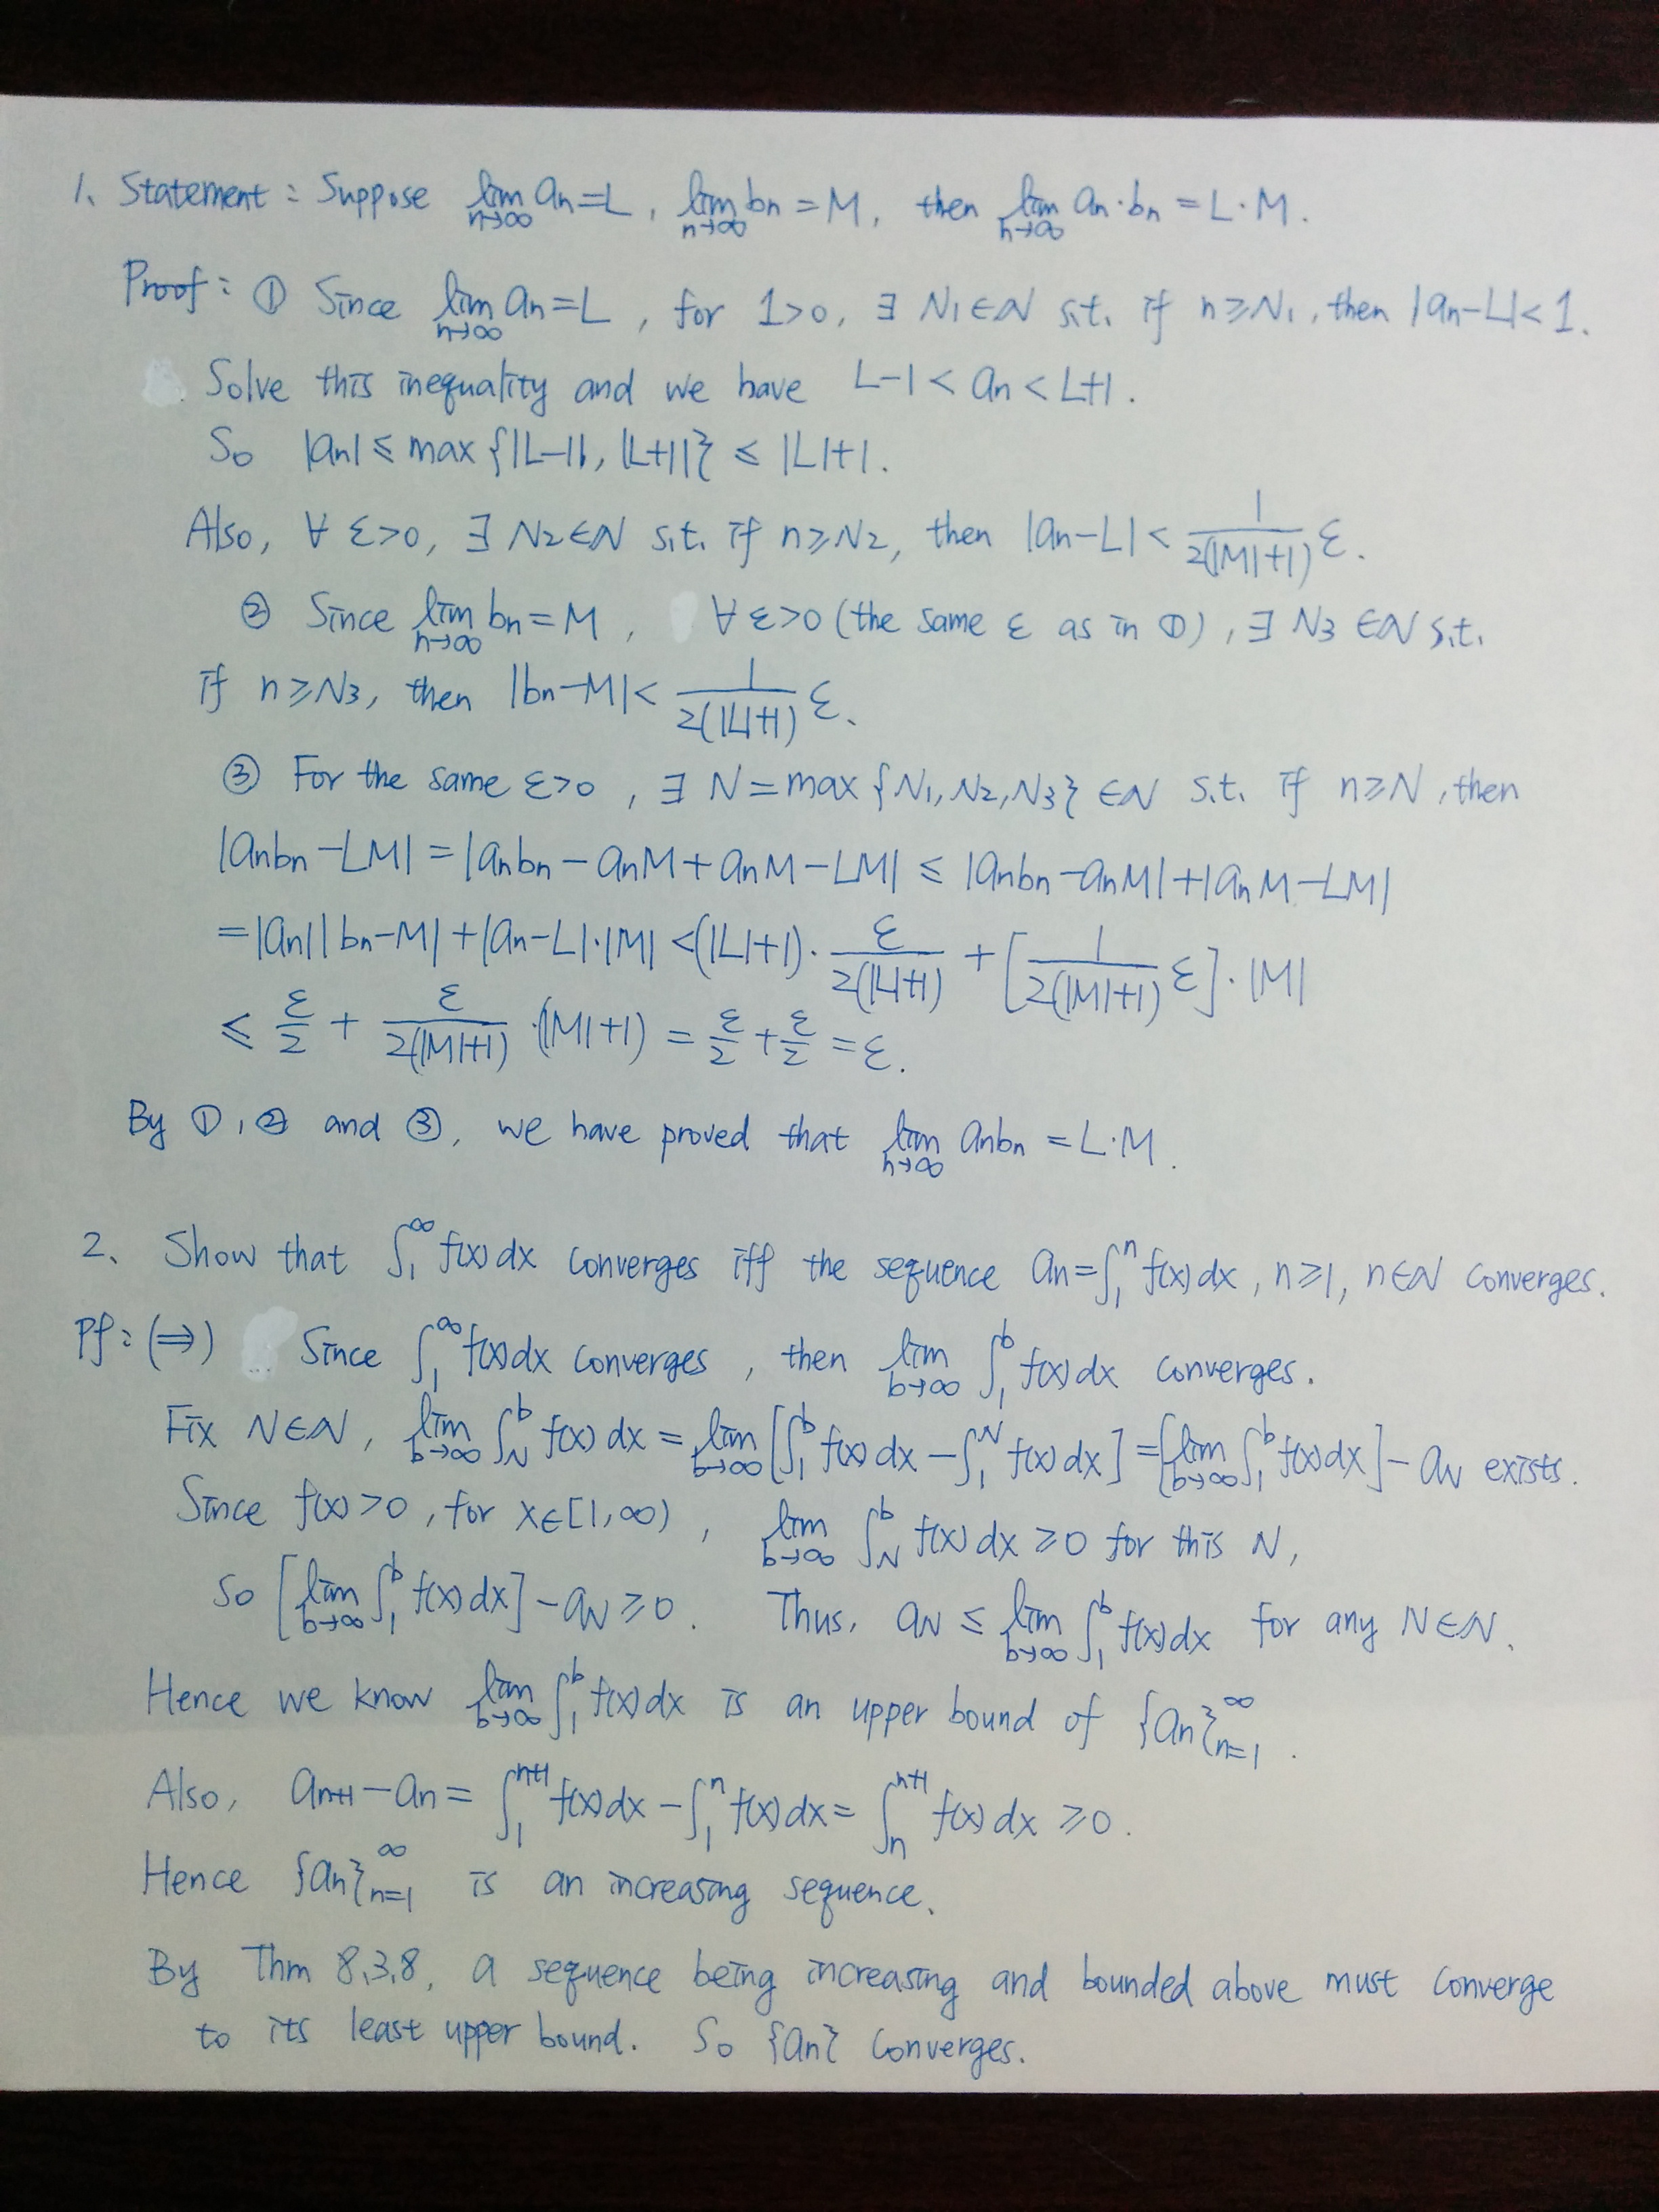 1、Statement: Suppose lim_{n→∞} an=L, lim_{n→∞} bn=M, then lim_{n→∞} an·bn=L·M.
Proof: ① Since lim_{n→∞} an=L, for 1>0, ∃ N1∈N s.t. if n≥N1, then |an-L|<1.
Solve this inequality and we have L-1<an<L+1.
So |an|≤max{|L-1|, |L+1|}≤|L|+1.
Also, ∀ ε>0, ∃ N2∈N s.t. if n≥N2, then |an-L|<\frac{1}{2(|M|+1)}ε.
② Since lim_{n→∞} bn=M, ∀ε>0 (the same ε as in ①), ∃ N3∈N s.t.
if n≥N3, then |bn-M|<\frac{1}{2(|L|+1)}ε.
③ For the same ε>0, ∃ N=max{N1,N2,N3}∈N s.t. if n≥N, then
|anbn-LM|=|anbn-anM+anM-LM|≤|anbn-anM|+|anM-LM|
=|an||bn-M|+|an-L|·|M|<(|L|+1)·\frac{ε}{2(|L|+1)}+[\frac{1}{2(|M|+1)}ε]·|M|
≤\frac{ε}{2}+\frac{ε}{2(|M|+1)}·(|M|+1)=\frac{ε}{2}+\frac{ε}{2}=ε.
By ①,② and ③, we have proved that lim_{n→∞} anbn=L·M.
2、Show that ∫_1^∞ f(x)dx converges iff the sequence an=∫_1^n f(x)dx, n≥1, n∈N converges.
Pf: (⇒) Since ∫_1^∞ f(x)dx converges, then lim_{b→∞} ∫_1^b f(x)dx converges.
Fix N∈N, lim_{b→∞} ∫_N^b f(x)dx=lim_{b→∞}[∫_1^b f(x)dx-∫_1^N f(x)dx]=[lim_{b→∞}∫_1^b f(x)dx]-aN exists.
Since f(x)>0, for x∈[1,∞), lim_{b→∞} ∫_N^b f(x)dx≥0 for this N,
So [lim_{b→∞}∫_1^b f(x)dx]-aN≥0. Thus, aN≤lim_{b→∞}∫_1^b f(x)dx for any N∈N.
Hence we know lim_{b→∞}∫_1^b f(x)dx is an upper bound of {an}_{n=1}^∞.
Also, a_{n+1}-an=∫_1^{n+1} f(x)dx-∫_1^n f(x)dx=∫_n^{n+1} f(x)dx≥0.
Hence {an}_{n=1}^∞ is an increasing sequence.
By Thm 8.3.8, a sequence being increasing and bounded above must converge
to its least upper bound. So {an} converges.